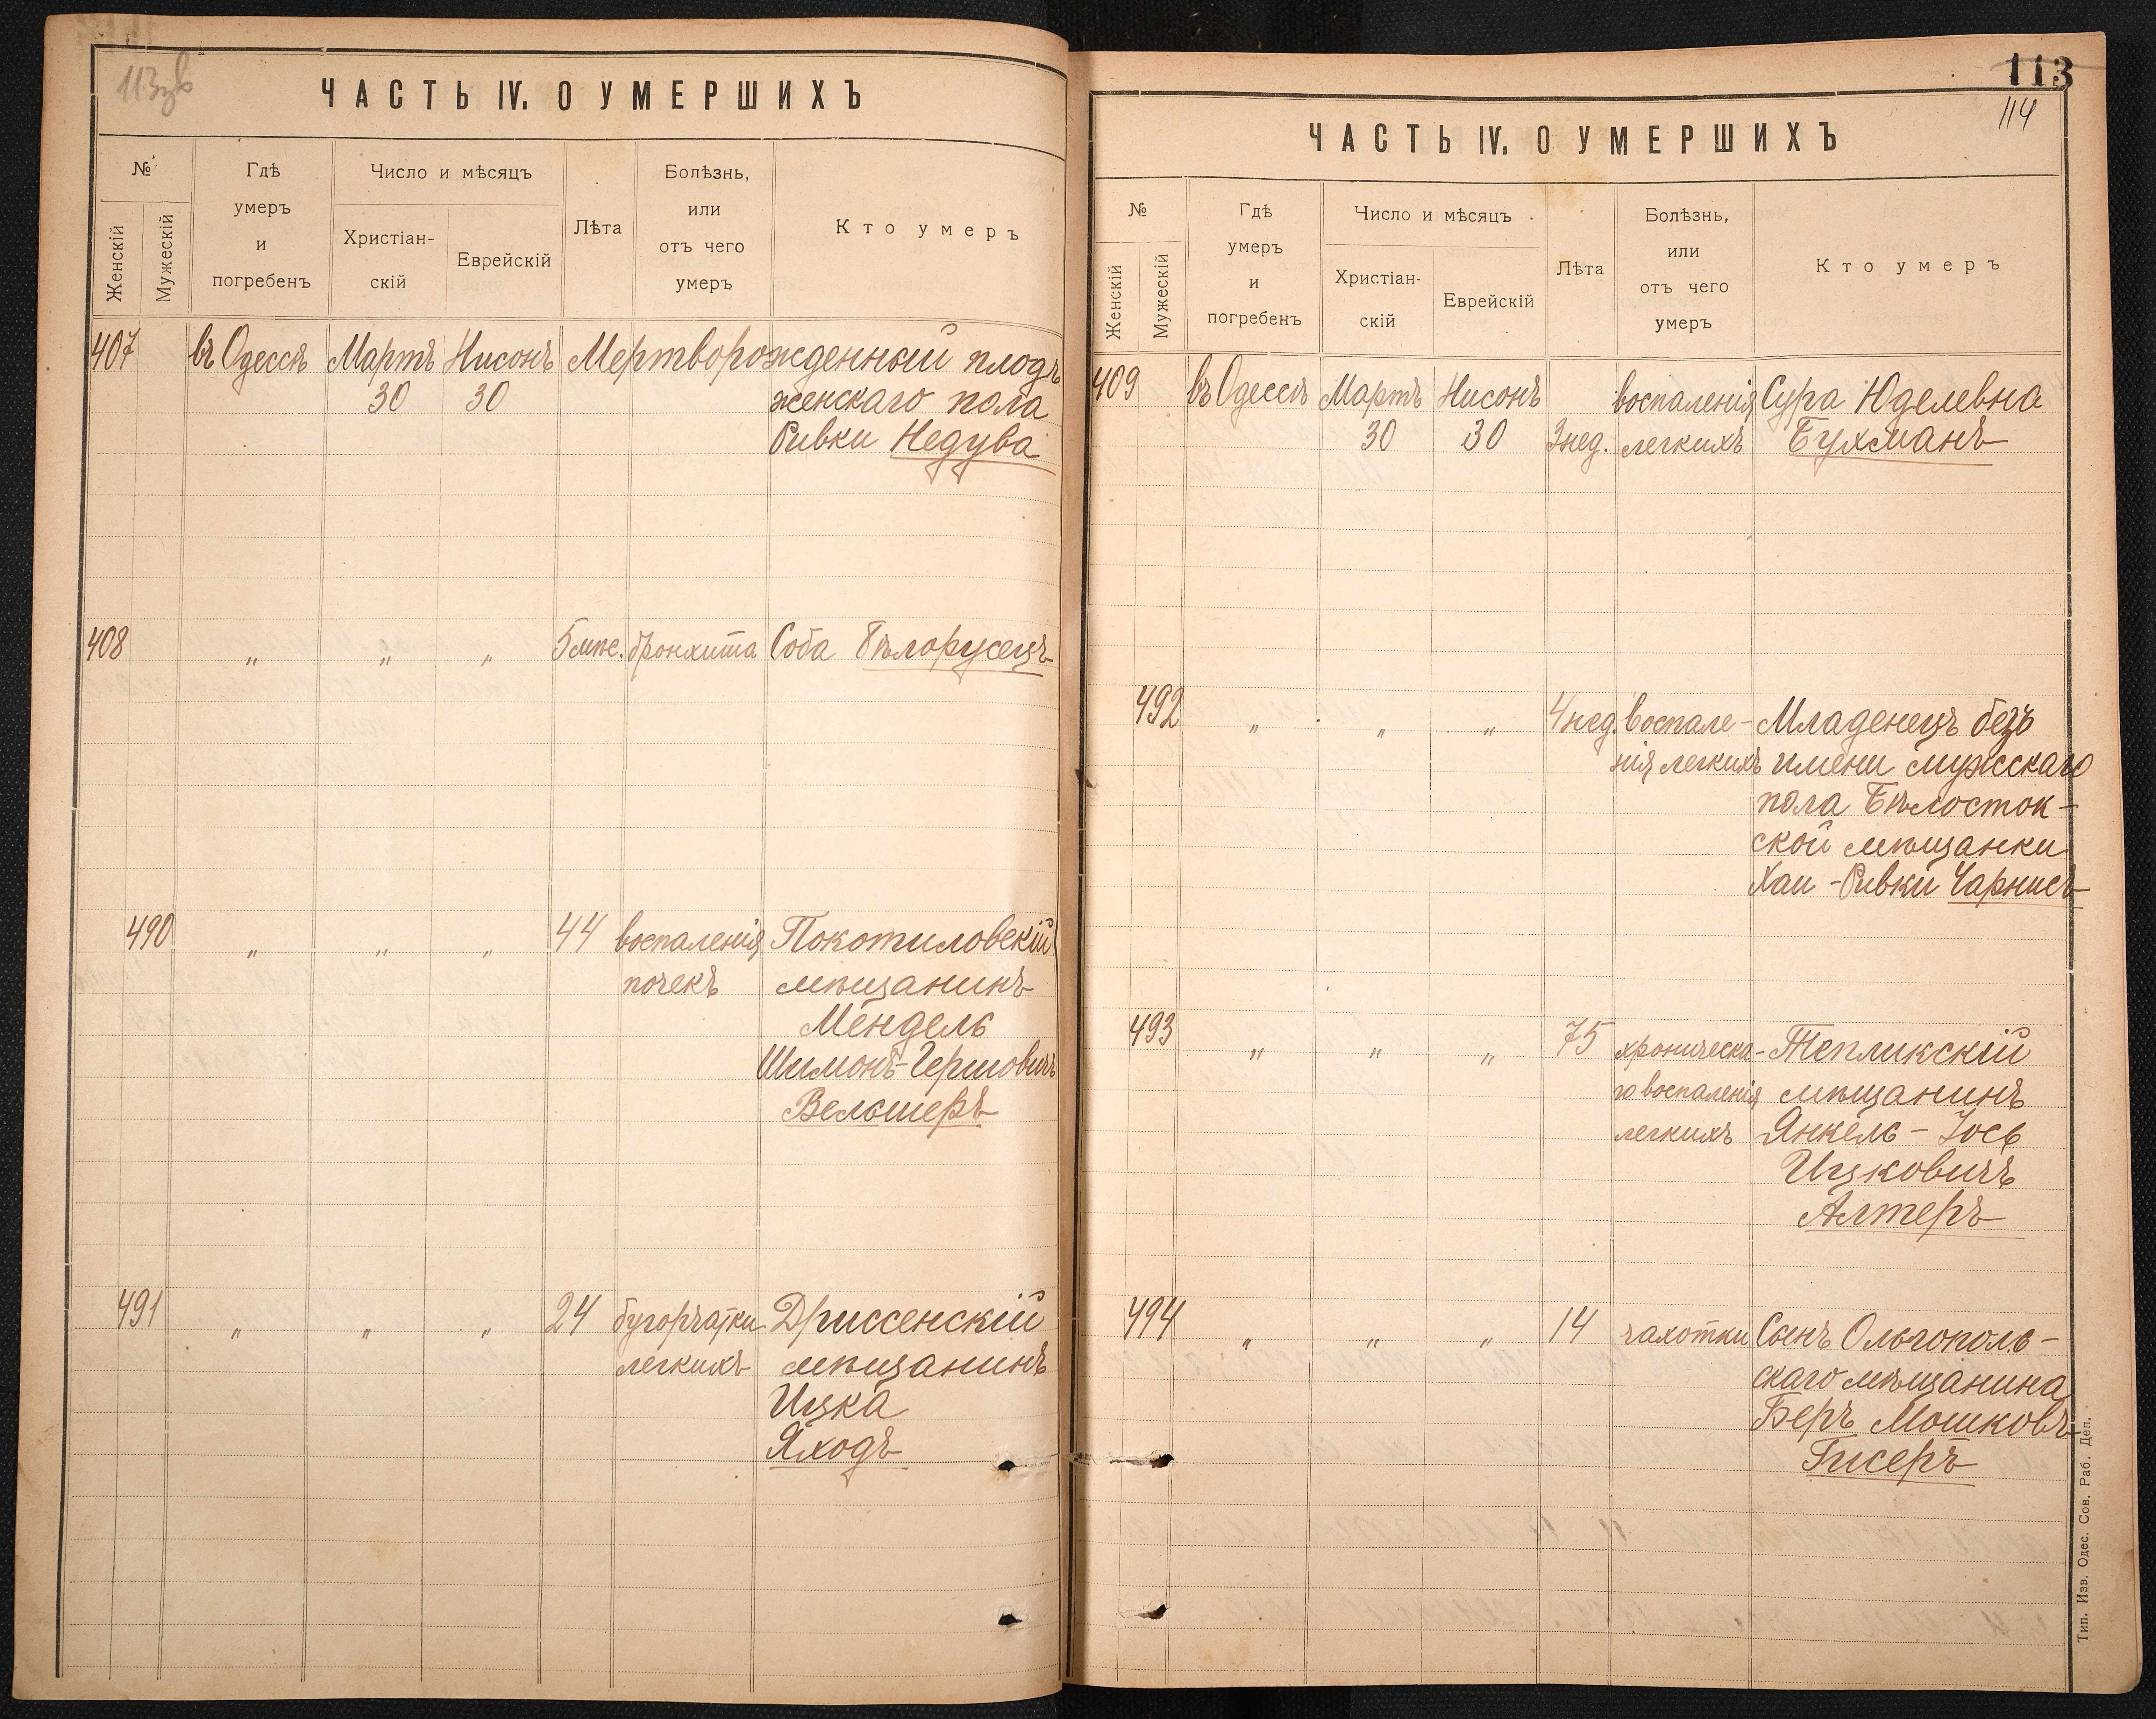 113зв
ЧАСТЬ IV. О УМЕРШИХЪ
№
Женскій
Мужескій
Гдѣ
умеръ
и
погребенъ
Число и мѣсяцъ
Христіан-
скій
Еврейскій
Лѣта
Болѣзнь,
или
отъ чего
умеръ
Кто умеръ
407 въ Одессѣ Мартъ Нисонъ Мертворожденный плодъ
30 30 женскаго пола
Ривки Недува
408 " " " 5 мѣс. бронхита Соба Бѣлорусецъ
490 " " " 44 воспаленія Покотиловскій
почекъ мѣщанинъ
Мендель
Шимонъ-Гершовичъ
Вельшеръ
491 " " " 24 бугорчатки Дриссенскій
легкихъ мѣщанинъ
Ицка
Яходъ
113
114
ЧАСТЬ IV. О УМЕРШИХЪ
№
Женскій
Мужескій
Гдѣ
умеръ
и
погребенъ
Число и мѣсяцъ
Христіан-
скій
Еврейскій
Лѣта
Болѣзнь,
или
отъ чего
умеръ
Кто умеръ
409 въ Одессѣ Мартъ Нисонъ воспаленія Сура Юделевна
30 30 3 нед. легкихъ Бухманъ
492 " " " 4 нед. воспале- Младенецъ безъ
нія легкихъ имени мужскаго
пола Бѣлосток-
ской мѣщанки
Хаи-Ривки Чарнисъ
493 " " " 75 хроническа- Тепликскій
го воспаленія мѣщанинъ
легкихъ Янкель-Іось
Ицковичъ
Алтеръ
494 " " " 14 чахотки Сынъ Ольгополь-
скаго мѣщанина
Беръ Мошковъ
Гисеръ
Тип. Изв. Одес. Сов. Раб. Деп.